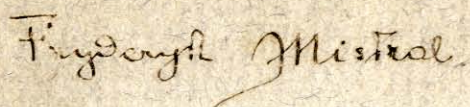 Fryderyk Mistral.